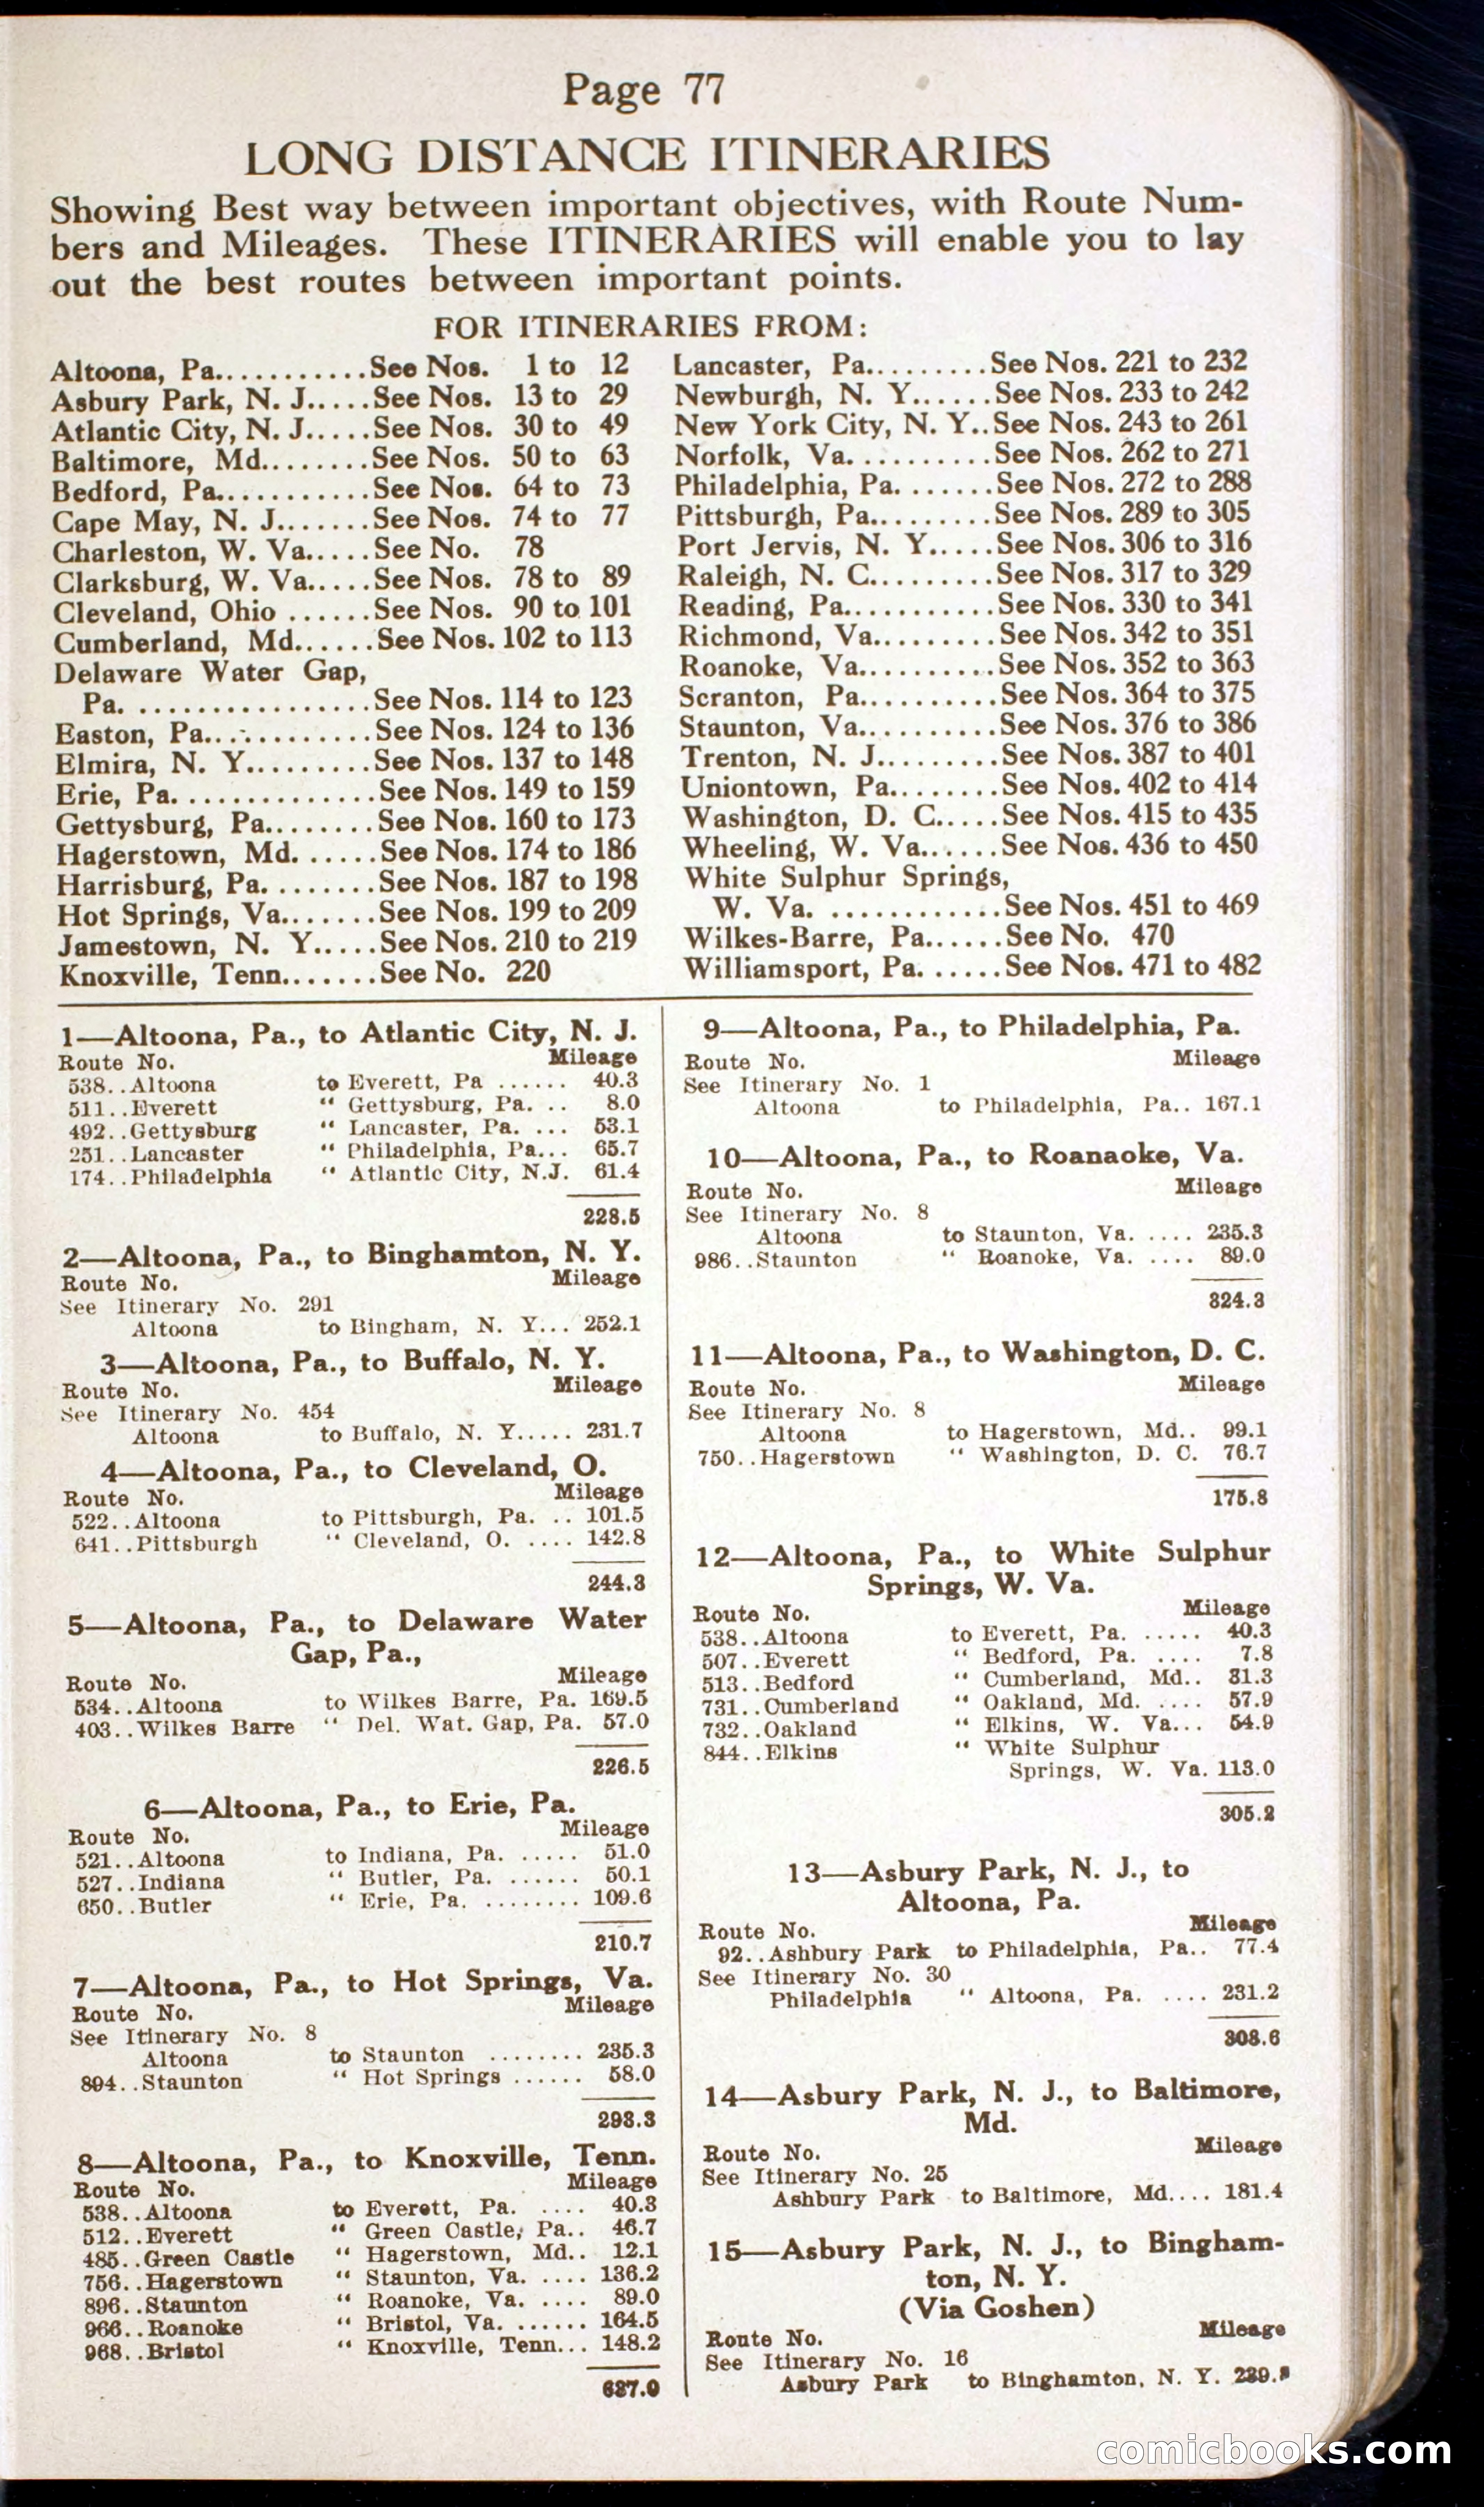 Page 77
LONG DISTANCE ITINERARIES
Showing Best way between important objectives, with Route Num-
bers and Mileages. These ITINERARIES will enable you to lay
out the best routes between important points.
FOR ITINERARIES FROM:
Altoona, Pa............See Nos. 1 to 12
Asbury Park, N. J.....See Nos. 13 to 29
Atlantic City, N. J.....See Nos. 30 to 49
Baltimore, Md........See Nos. 50 to 63
Bedford, Pa............See Nos. 64 to 73
Cape May, N. J.......See Nos. 74 to 77
Charleston, W. Va.....See No. 78
Clarksburg, W. Va.....See Nos. 78 to 89
Cleveland, Ohio ......See Nos. 90 to 101
Cumberland, Md......See Nos. 102 to 113
Delaware Water Gap,
Pa. ................See Nos. 114 to 123
Easton, Pa............See Nos. 124 to 136
Elmira, N. Y.........See Nos. 137 to 148
Erie, Pa. .............See Nos. 149 to 159
Gettysburg, Pa........See Nos. 160 to 173
Hagerstown, Md. ......See Nos. 174 to 186
Harrisburg, Pa. ........See Nos. 187 to 198
Hot Springs, Va.......See Nos. 199 to 209
Jamestown, N. Y.....See Nos. 210 to 219
Knoxville, Tenn.......See No. 220
Lancaster, Pa.........See Nos. 221 to 232
Newburgh, N. Y......See Nos. 233 to 242
New York City, N. Y..See Nos. 243 to 261
Norfolk, Va. ..........See Nos. 262 to 271
Philadelphia, Pa. .......See Nos. 272 to 288
Pittsburgh, Pa.........See Nos. 289 to 305
Port Jervis, N. Y.....See Nos. 306 to 316
Raleigh, N. C.........See Nos. 317 to 329
Reading, Pa...........See Nos. 330 to 341
Richmond, Va.........See Nos. 342 to 351
Roanoke, Va..........See Nos. 352 to 363
Scranton, Pa..........See Nos. 364 to 375
Staunton, Va..........See Nos. 376 to 386
Trenton, N. J.........See Nos. 387 to 401
Uniontown, Pa........See Nos. 402 to 414
Washington, D. C.....See Nos. 415 to 435
Wheeling, W. Va......See Nos. 436 to 450
White Sulphur Springs,
W. Va. ............See Nos. 451 to 469
Wilkes-Barre, Pa......See No. 470
Williamsport, Pa. ......See Nos. 471 to 482
1—Altoona, Pa., to Atlantic City, N. J.
Route No. Mileage
538..Altoona to Everett, Pa ...... 40.3
511..Everett “ Gettysburg, Pa. .. 8.0
492..Gettysburg “ Lancaster, Pa. ... 53.1
251..Lancaster “ Philadelphia, Pa... 65.7
174..Philadelphia “ Atlantic City, N.J. 61.4
228.5
2—Altoona, Pa., to Binghamton, N. Y.
Route No. Mileage
See Itinerary No. 291
Altoona to Bingham, N. Y... 252.1
3—Altoona, Pa., to Buffalo, N. Y.
Route No. Mileage
See Itinerary No. 454
Altoona to Buffalo, N. Y..... 231.7
4—Altoona, Pa., to Cleveland, O.
Route No. Mileage
522..Altoona to Pittsburgh, Pa. .. 101.5
641..Pittsburgh “ Cleveland, O. .... 142.8
244.3
5—Altoona, Pa., to Delaware Water
Gap, Pa.,
Route No. Mileage
534..Altoona to Wilkes Barre, Pa. 169.5
403..Wilkes Barre “ Del. Wat. Gap, Pa. 57.0
226.5
6—Altoona, Pa., to Erie, Pa.
Route No. Mileage
521..Altoona to Indiana, Pa. ..... 51.0
527..Indiana “ Butler, Pa. ...... 50.1
650..Butler “ Erie, Pa. ........ 109.6
210.7
7—Altoona, Pa., to Hot Springs, Va.
Route No. Mileage
See Itinerary No. 8
Altoona to Staunton ........ 235.3
894..Staunton “ Hot Springs ...... 58.0
293.3
8—Altoona, Pa., to Knoxville, Tenn.
Route No. Mileage
538..Altoona to Everett, Pa. .... 40.3
512..Everett “ Green Castle, Pa.. 46.7
485..Green Castle “ Hagerstown, Md.. 12.1
756..Hagerstown “ Staunton, Va. .... 136.2
896..Staunton “ Roanoke, Va. .... 89.0
966..Roanoke “ Bristol, Va. ...... 164.5
968..Bristol “ Knoxville, Tenn... 148.2
637.0
9—Altoona, Pa., to Philadelphia, Pa.
Route No. Mileage
See Itinerary No. 1
Altoona to Philadelphia, Pa.. 167.1
10—Altoona, Pa., to Roanaoke, Va.
Route No. Mileage
See Itinerary No. 8
Altoona to Staunton, Va. .... 235.3
986..Staunton “ Roanoke, Va. .... 89.0
324.3
11—Altoona, Pa., to Washington, D. C.
Route No. Mileage
See Itinerary No. 8
Altoona to Hagerstown, Md.. 99.1
750..Hagerstown “ Washington, D. C. 76.7
175.8
12—Altoona, Pa., to White Sulphur
Springs, W. Va.
Route No. Mileage
538..Altoona to Everett, Pa. ..... 40.3
507..Everett “ Bedford, Pa. .... 7.8
513..Bedford “ Cumberland, Md.. 31.3
731..Cumberland “ Oakland, Md. .... 57.9
732..Oakland “ Elkins, W. Va... 54.9
844..Elkins “ White Sulphur
Springs, W. Va. 113.0
305.2
13—Asbury Park, N. J., to
Altoona, Pa.
Route No. Mileage
92..Ashbury Park to Philadelphia, Pa.. 77.4
See Itinerary No. 30
Philadelphia “ Altoona, Pa. .... 231.2
308.6
14—Asbury Park, N. J., to Baltimore,
Md.
Route No. Mileage
See Itinerary No. 25
Ashbury Park to Baltimore, Md.... 181.4
15—Asbury Park, N. J., to Bingham-
ton, N. Y.
(Via Goshen)
Route No. Mileage
See Itinerary No. 16
Asbury Park to Binghamton, N. Y.
comicbooks.com